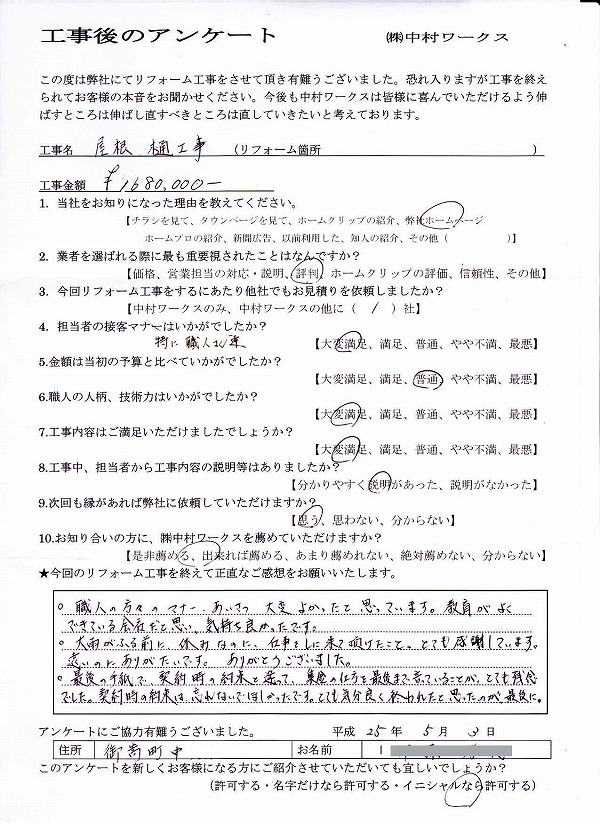 工事後のアンケート ㈱中村ワークス
この度は弊社にてリフォーム工事をさせて頂き有難うございました。恐れ入りますが工事を終え
られてお客様の本音をお聞かせください。今後も中村ワークスは皆様に喜んでいただけるよう伸
ばすところは伸ばし直すべきところは直していきたいと考えております。
工事名 屋根 樋工事 (リフォーム箇所 )
工事金額 ¥1680,000-
1. 当社をお知りになった理由を教えてください。
【チラシを見て、タウンページを見て、ホームクリップの紹介、弊社ホームページ
ホームプロの紹介、新聞広告、以前利用した、知人の紹介、その他( )】
2. 業者を選ばれる際に最も重要視されたことはなんですか?
【価格、営業担当の対応・説明、評判、ホームクリップの評価、信頼性、その他】
3. 今回リフォーム工事をするにあたり他社でもお見積りを依頼しましたか?
【中村ワークスのみ、中村ワークスの他に( / )社】
4. 担当者の接客マナーはいかがでしたか?
特に職人さん達
【大変満足、満足、普通、やや不満、最悪】
5.金額は当初の予算と比べていかがでしたか?
【大変満足、満足、普通、やや不満、最悪】
6.職人の人柄、技術力はいかがでしたか?
【大変満足、満足、普通、やや不満、最悪】
7.工事内容はご満足いただけましたでしょうか?
【大変満足、満足、普通、やや不満、最悪】
8.工事中、担当者から工事内容の説明等はありましたか?
【分かりやすく説明があった、説明がなかった】
9.次回も縁があれば弊社に依頼していただけますか?
【思う、思わない、分からない】
10.お知り合いの方に、㈱中村ワークスを薦めていただけますか?
【是非薦める、出来れば薦める、あまり薦めれない、絶対薦めない、分からない】
★今回のリフォーム工事を終えて正直なご感想をお願いいたします。
○ 職人の方々のマナー、あいさつ 大変よかったと思っています。教育がよく
できている会社だと思い、気持ち良かったです。
○ 大雨がふる前に、休みなのに、仕事をしに来て頂けたこと。とても感謝しています。
遠いのにありがたいです。 ありがとうございました。
○ 最後の手紙で、契約時の約束と違って、集金の仕方を最後まで言っていることが、とても残念
でした。契約時の約束は、忘れないでほしかったです。とても気分良く終われたと思ったのが最後に。
アンケートにご協力有難うございました。 平成 25年 5月 3日
住所 御寄町中 お名前
このアンケートを新しくお客様になる方にご紹介させていただいても宜しいでしょうか?
(許可する・名字だけなら許可する・イニシャルなら許可する)